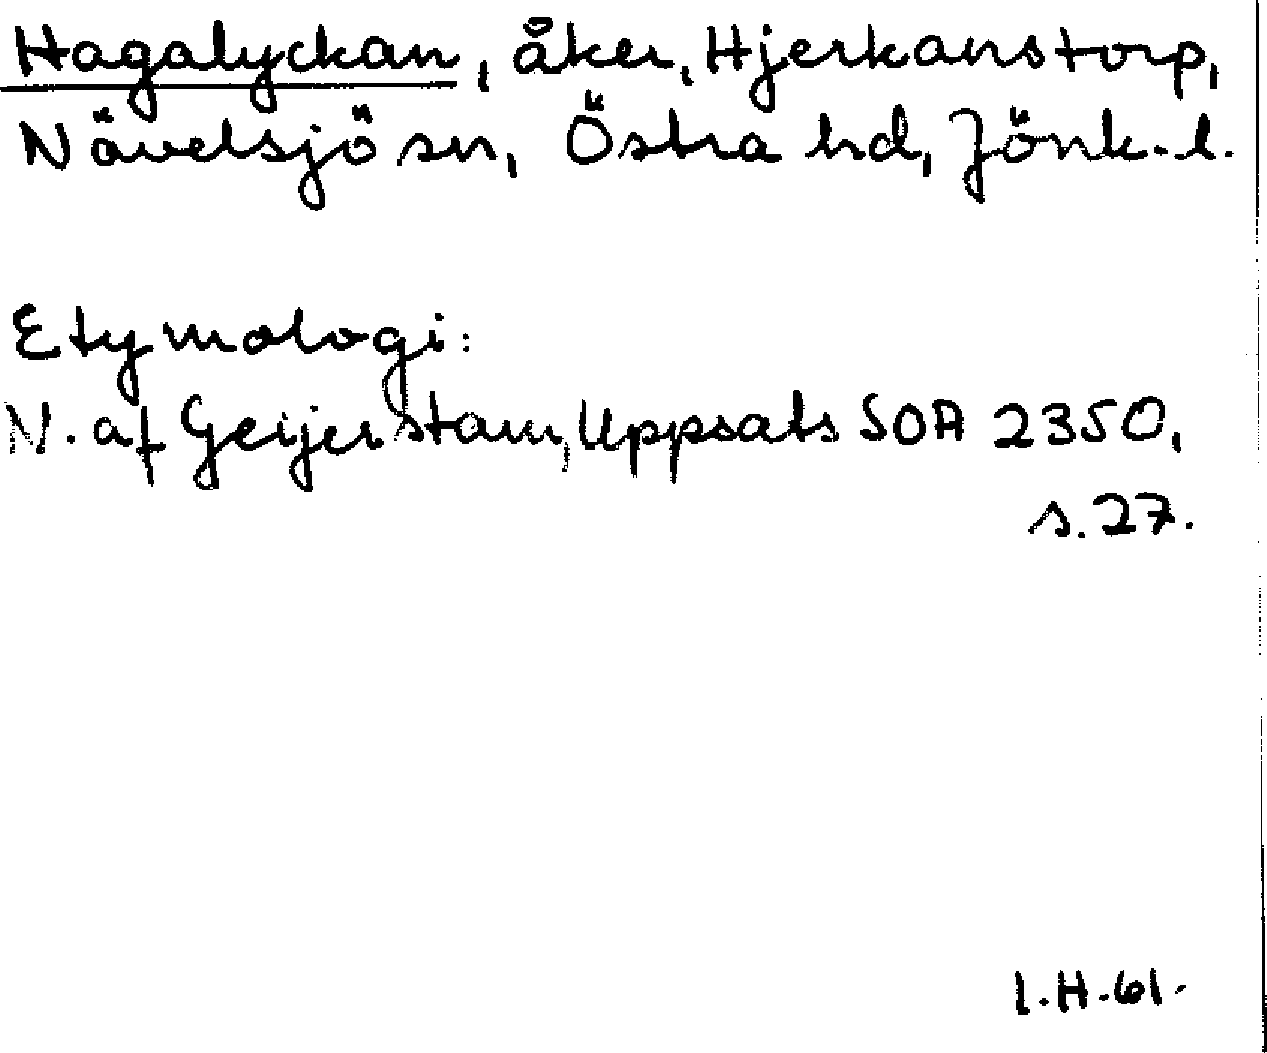 Hagalyckan, åker, Hjerkanstorp,
Nävelsjö sn, Östra hd, Jönk.l.
Etymologi:
N. af Geijerstam, Uppsats SOA 2350,
s. 27.
I.H.61.